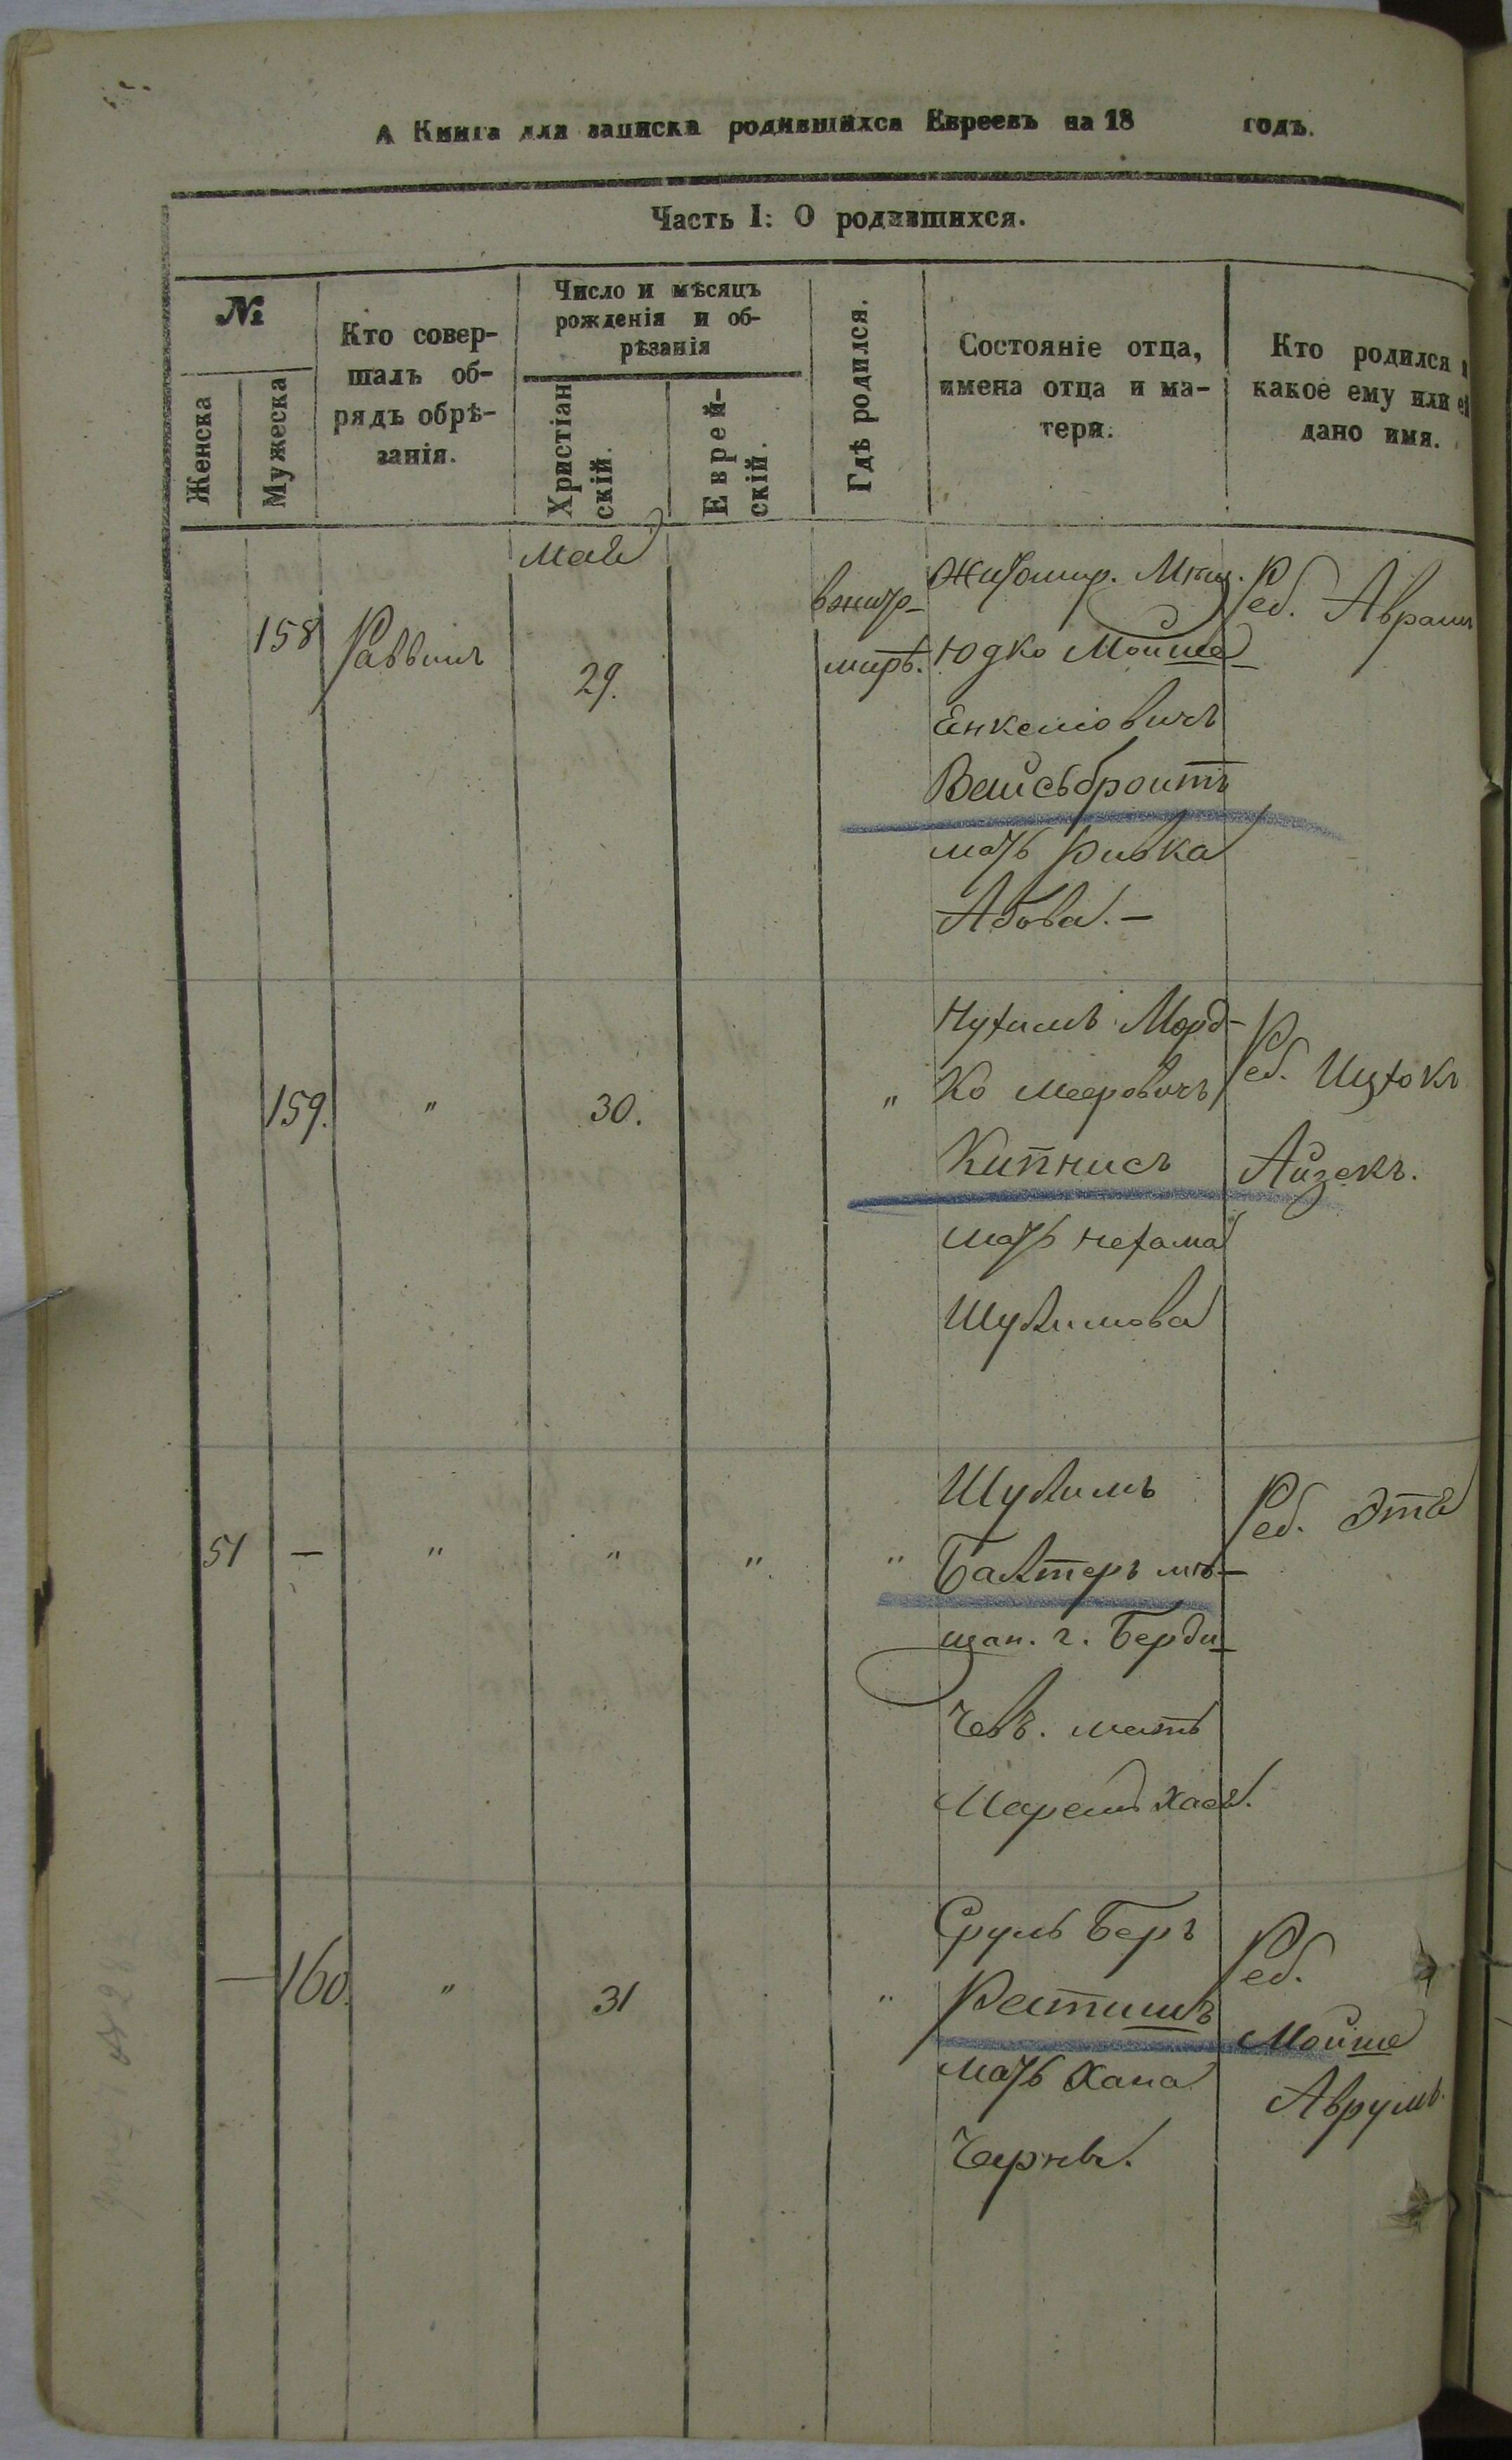 А Книга для записка родившихся Евреевъ на 18 годъ.
Часть I: О родившихся.
№
Женска
Мужеска
Кто совер-
шалъ об-
рядъ обрѣ-
занія.
Число и мѣсяцъ
рожденія и об-
рѣзанія
Христіан
скій.
Еврей-
скій.
Гдѣ родился.
Состояніе отца,
имена отца и ма-
тери.
Кто родился и
какое ему или ей
дано имя.
Май
158
Раввинъ
29.
вжито-
мирѣ.
Житомир. Мѣщ.
Юдко Мойше
Енкелювичъ
Вайсъбройтъ
мать Ривка
Абова. —
Реб. Аврамъ
159.
"
30.
"
Нухимъ Морд-
ко Мееровичъ
Кипнисъ
мать Нехама
Шулимова
Реб. Ицхокъ
Айзекъ.
51
—
"
"
"
"
Шулимъ
Балтеръ мѣ-
щан. г. Берди-
чевъ. мать
Хаев.
Реб. Эта
—
160.
"
31
"
Сруль Беръ
мать Хана
Черна.
Реб.
Мойше
Аврумъ.